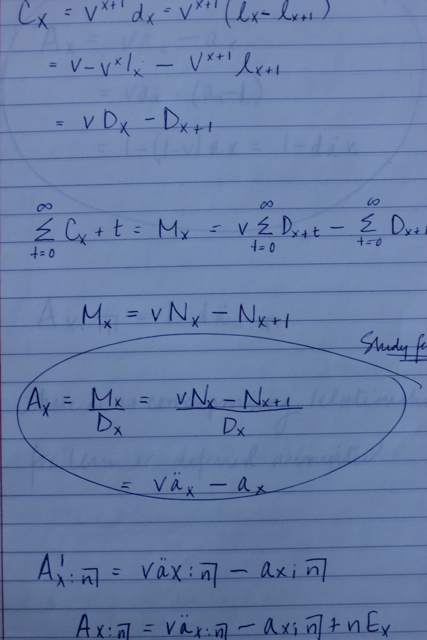 Cx = v^x+1 dx = v^x+1 (lx - lx+1)
= v-v^x lx - v^x+1 lx+1
= vDx - Dx+1
∞ ∑ t=0 Cx+t = Mx = v ∞ ∑ t=0 Dx+t - ∞ ∑ t=0 Dx+
Mx = vNx - Nx+1
Study
Ax = Mx/Dx = vNx - Nx+1/Dx
= väx - ax
A'x:n̅| = väx:n̅| - ax:n̅|
Ax:n̅| = väx:n̅| - ax:n̅| + nEx